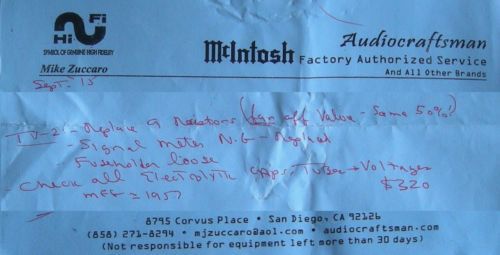 Hi Fi
SYMBOL OF GENUINE HIGH FIDELITY
Mike Zuccaro
Audiocraftsman
McIntosh Factory Authorized Service
And All Other Brands
Sept. '15
TV-2 - Replace 9 Resistors ( off Value - Some 50%!)
- Signal meter N.G - Replace
Fuseholder loose
- Check all Electrolytic Caps, Tubes + Voltages
MFF ≈ 1957 $320
8795 Corvus Place • San Diego, CA 92126
(858) 271-8294 • mjzuccaro@aol.com • audiocraftsman.com
(Not responsible for equipment left more than 30 days)